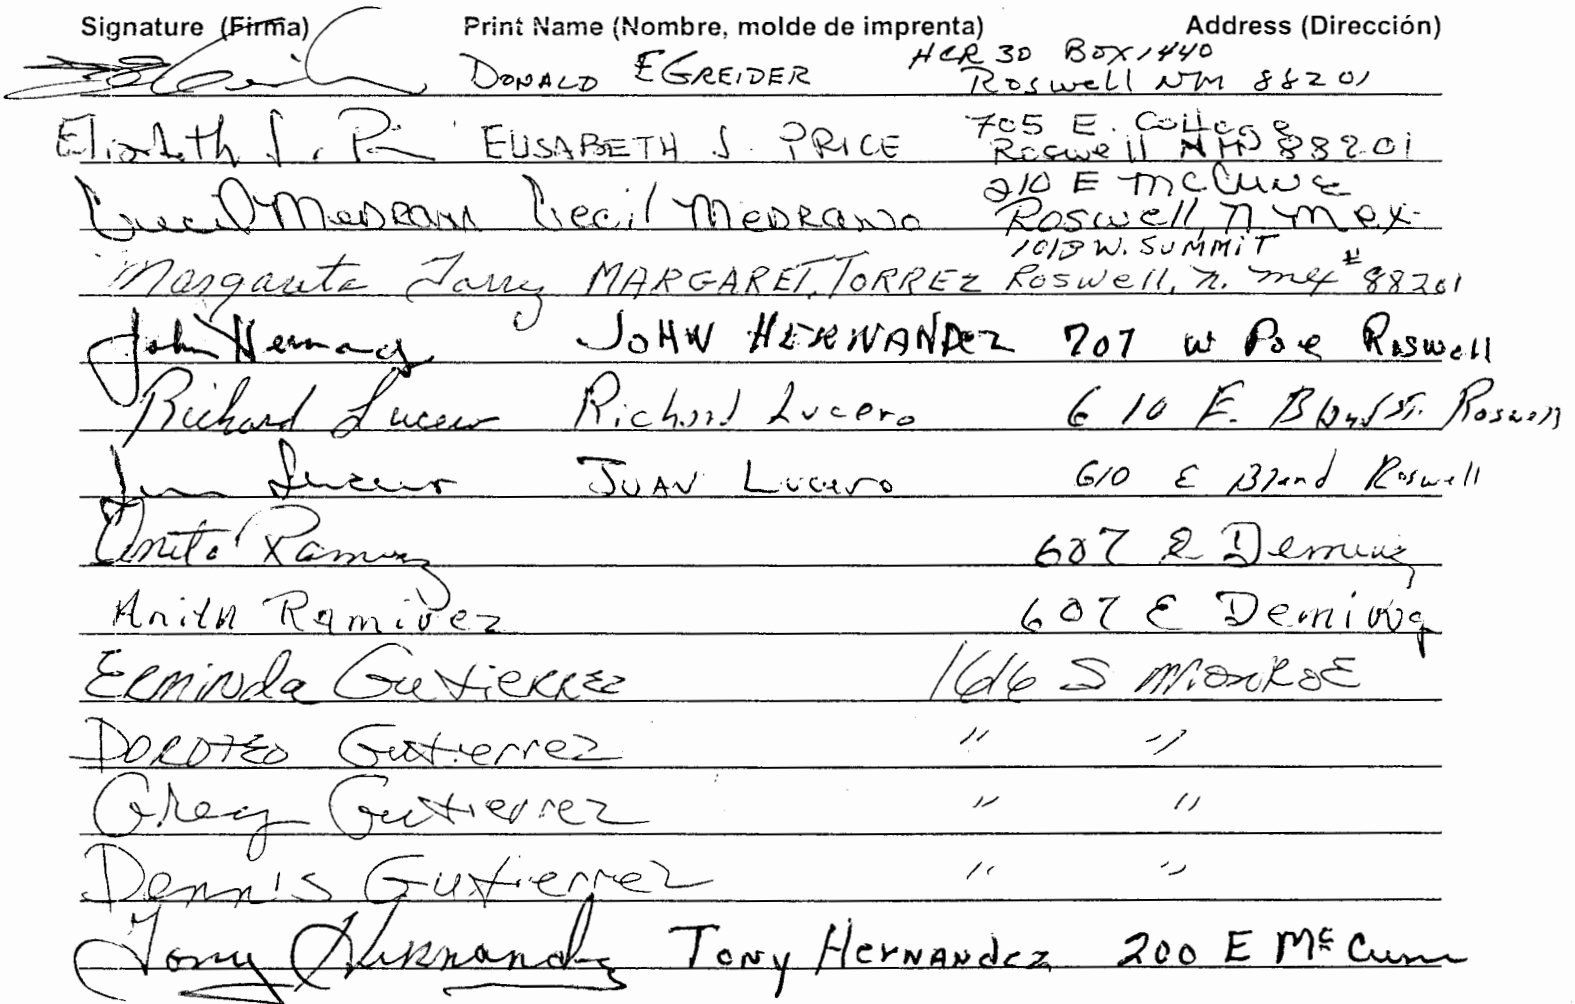 Signature (Firma) Print Name (Nombre, molde de imprenta) Address (Dirección)
HCR 30 BOX 1440
DONALD E GREIDER Roswell NM 88201
705 E. College
Elizabeth J. P ELISABETH J. PRICE Roswell NM 88201
210 E McCune
Cecil MEDRANO Cecil MEDRANO Roswell, N Mex
1013 W. SUMMIT
Margarita Torrez MARGARET. TORREZ Roswell, N. Mex #88201
John Hernandez JOHN HERNANDEZ 707 W Poe Roswell
Richard Lucero Richard Lucero 610 E. Bland St. Roswell
Juan Lucero JUAN Lucero 610 E Bland Roswell
Anita Ramirez 607 E Deming
Anita Ramirez 607 E Deming
Erminda Gutierrez 1616 S Monroe
DOROTEO Gutierrez " "
Greg Gutierrez " "
Dennis Gutierrez " "
Tony Hernandez TONY HERNANDEZ 200 E McCune